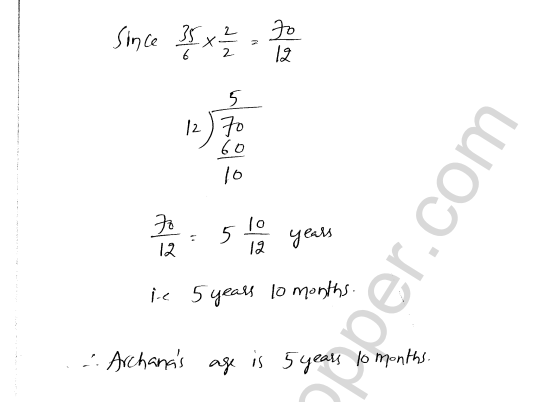 Since 35/6 × 2/2 = 70/12
5
12) 70
60
10
70/12 = 5 10/12 years
i.e 5 years 10 months.
∴ Archana's age is 5 years 10 months.
opper.com